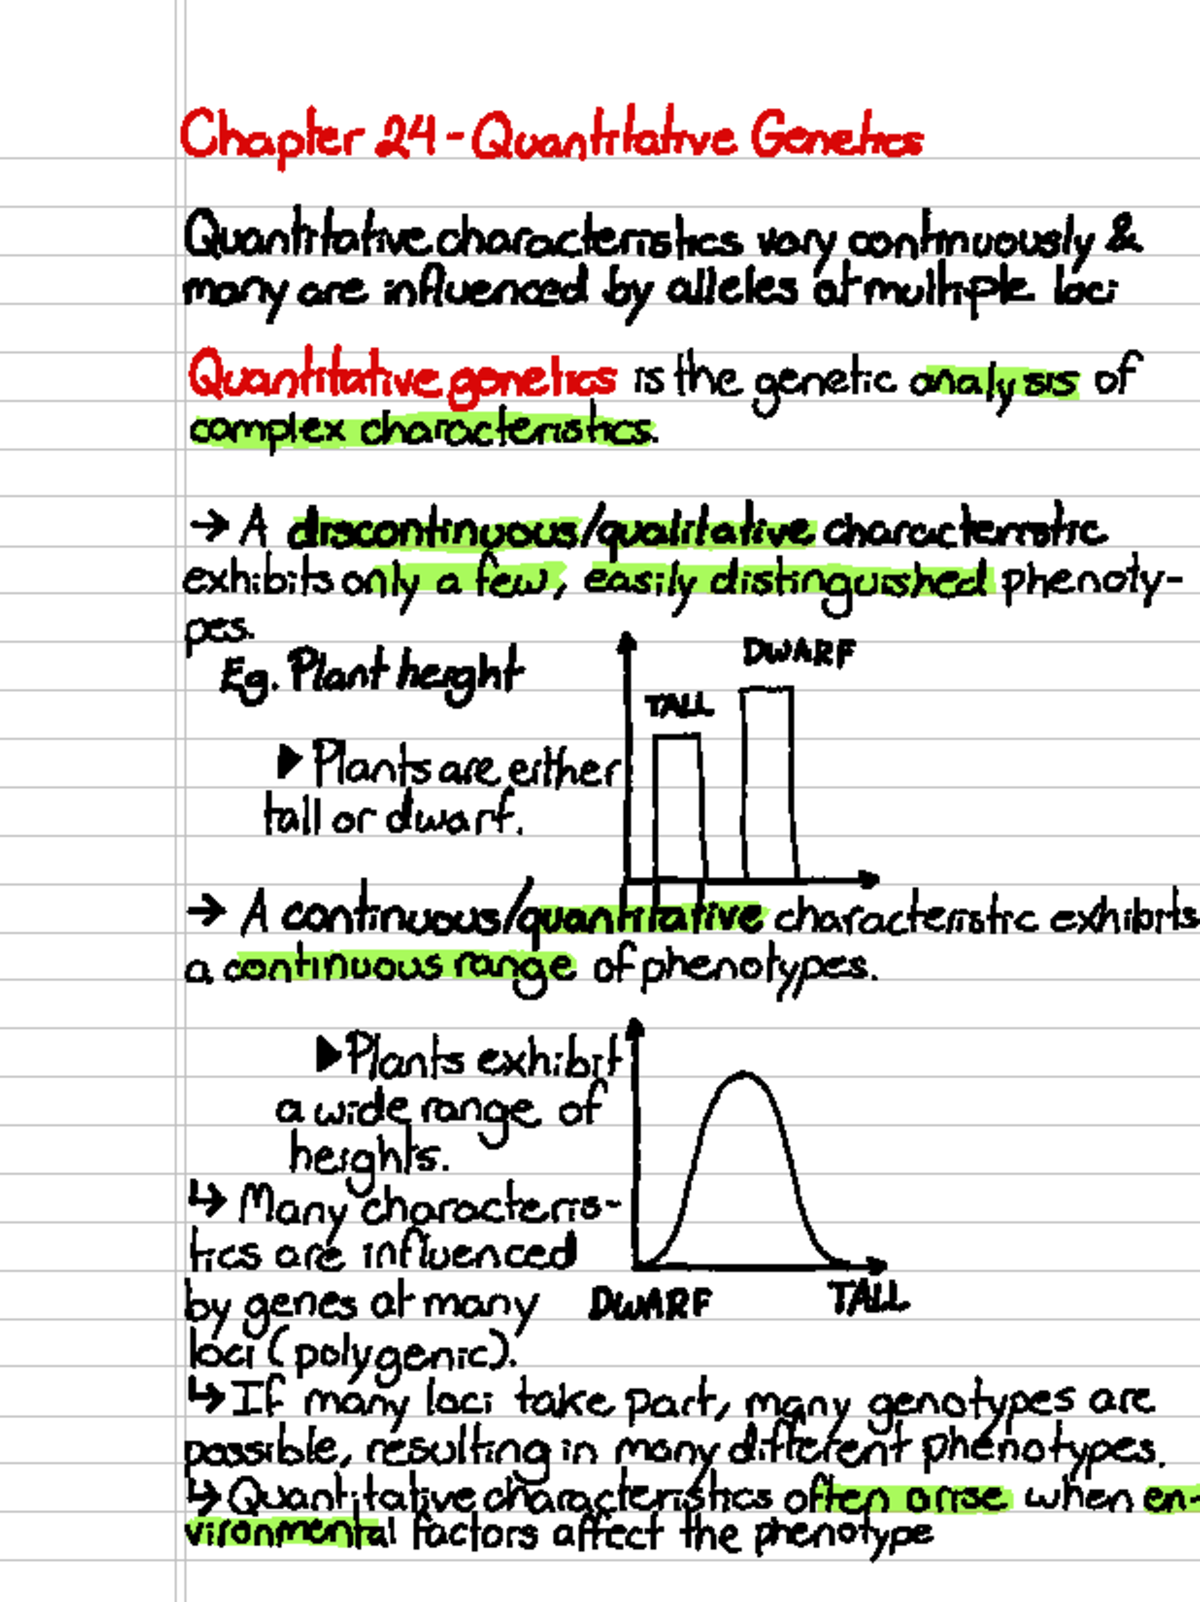 Chapter 24 - Quantitative Genetics
Quantitative characteristics vary continuously &
many are influenced by alleles at multiple loci
Quantitative genetics is the genetic analysis of
complex characteristics.
→ A discontinuous/qualitative characteristic
exhibits only a few, easily distinguished phenoty-
pes.
Eg. Plant height
▶ Plants are either
tall or dwarf.
TALL
DWARF
→ A continuous/quantitative characteristic exhibits
a continuous range of phenotypes.
▶ Plants exhibit
a wide range of
heights.
↳ Many characteris-
tics are influenced
by genes at many
loci (polygenic).
DWARF
TALL
↳ If many loci take part, many genotypes are
possible, resulting in many different phenotypes.
↳ Quantitative characteristics often arise when en-
vironmental factors affect the phenotype